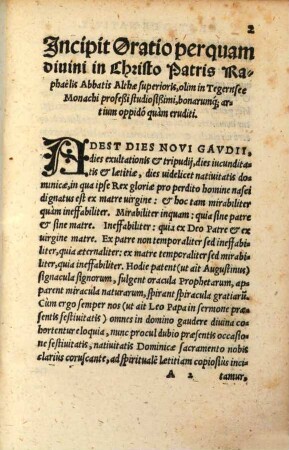 2
Incipit Oratio perquam
diuini in Christo Patris Ra-
phaëlis Abbatis Althæ superioris, olim in Tegernsee
Monachi professi studiosissimi, bonarumq; ar-
tium oppidò quàm eruditi.
ADEST DIES NOVI GAVDII,
dies exultationis & tripudij, dies iucundita-
tis & lætitiæ, dies uidelicet natiuitatis do-
minicæ, in qua ipse Rex gloriæ pro perdito homine nasci
dignatus est ex matre uirgine: & hoc tam mirabiliter
quàm ineffabiliter. Mirabiliter inquam: quia sine patre
& sine matre. Ineffabiliter: quia ex Deo Patre & ex
uirgine matre. Ex patre non temporaliter sed ineffabi-
liter, quia æternaliter: ex matre temporaliter sed mirabi-
liter, quia ineffabiliter. Hodie patent (ut ait Augustinus)
signacula signorum, fulgent oracula Prophetarum, ap-
parent miracula naturarum, spirant spiracula gratiarū.
Cùm ergo semper nos (ut ait Leo Papa in sermone præ-
sentis festiuitatis) omnes in domino gaudere diuina co-
hortentur eloquia, nunc procul dubio præsentis occasio-
ne festiuitatis, natiuitatis Dominicæ sacramento nobis
clarius coruscante, ad spiritualē lætitiam copiosius inci-
A 2 tamur,